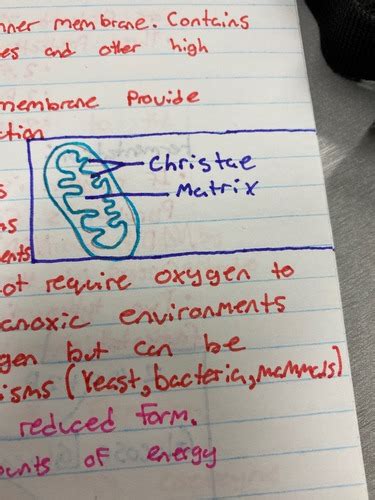 nner membrane. Contains
es and other high
membrane Provide
ction
Christae
Matrix
s
ns
ents
ot require oxygen to
anoxic environments
gen but can be
isms (Yeast, bacteria, mammals)
reduced form.
ounts of energy